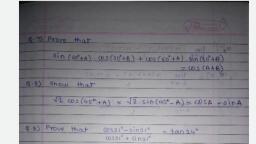 Q.7) Prove that
sin (60°+A) cos (30°+B) + cos (60°+A) . sin (30°+B)
= cos (A+B)
Q.8) Show that
√2 cos (45°+A) = √2 sin (45°-A) = cos A - sin A
Q.9) Prove that cos21° - sin21° / cos21° + sin21° = tan 24°